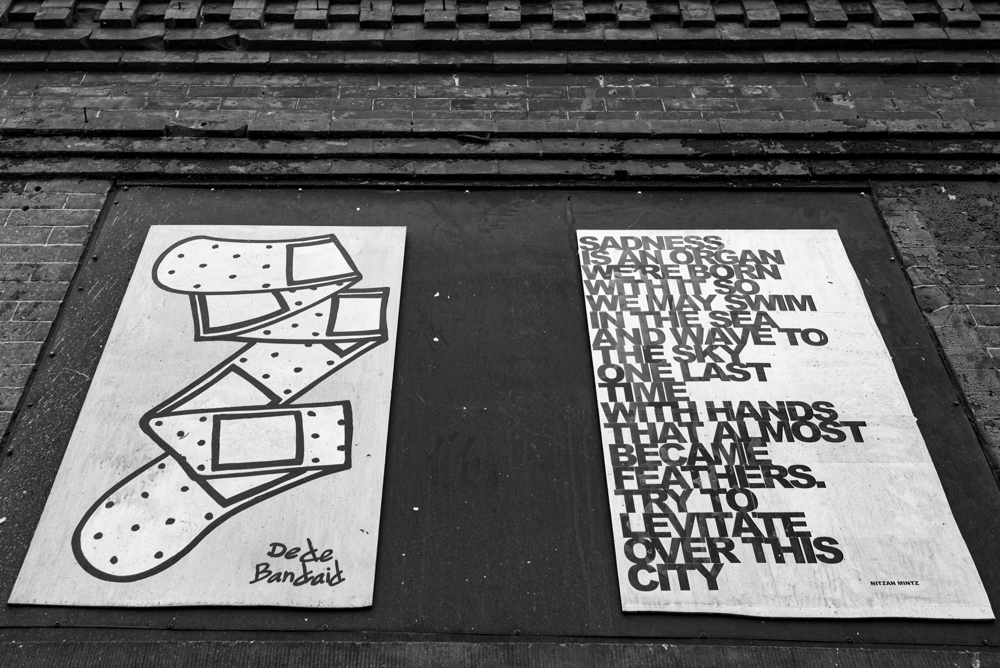 Dede
Bandaid
SADNESS
IS AN ORGAN
WE'RE BORN
WITH IT SO
WE MAY SWIM
IN THE SEA
AND WAVE TO
THE SKY
ONE LAST
TIME
WITH HANDS
THAT ALMOST
BECAME
FEATHERS.
TRY TO
LEVITATE
OVER THIS
CITY
NITZAN MINTZ